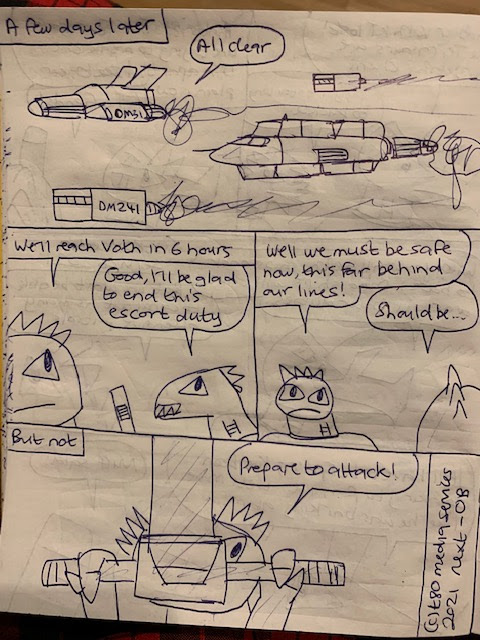 A few days later
All clear
DM31
DM241
We'll reach Voth in 6 hours
Good, I'll be glad
to end this
escort duty
Well we must be safe
now, this far behind
our lines!
Should be...
But not
Prepare to attack!
(c) t80 media services
2021 next - 08